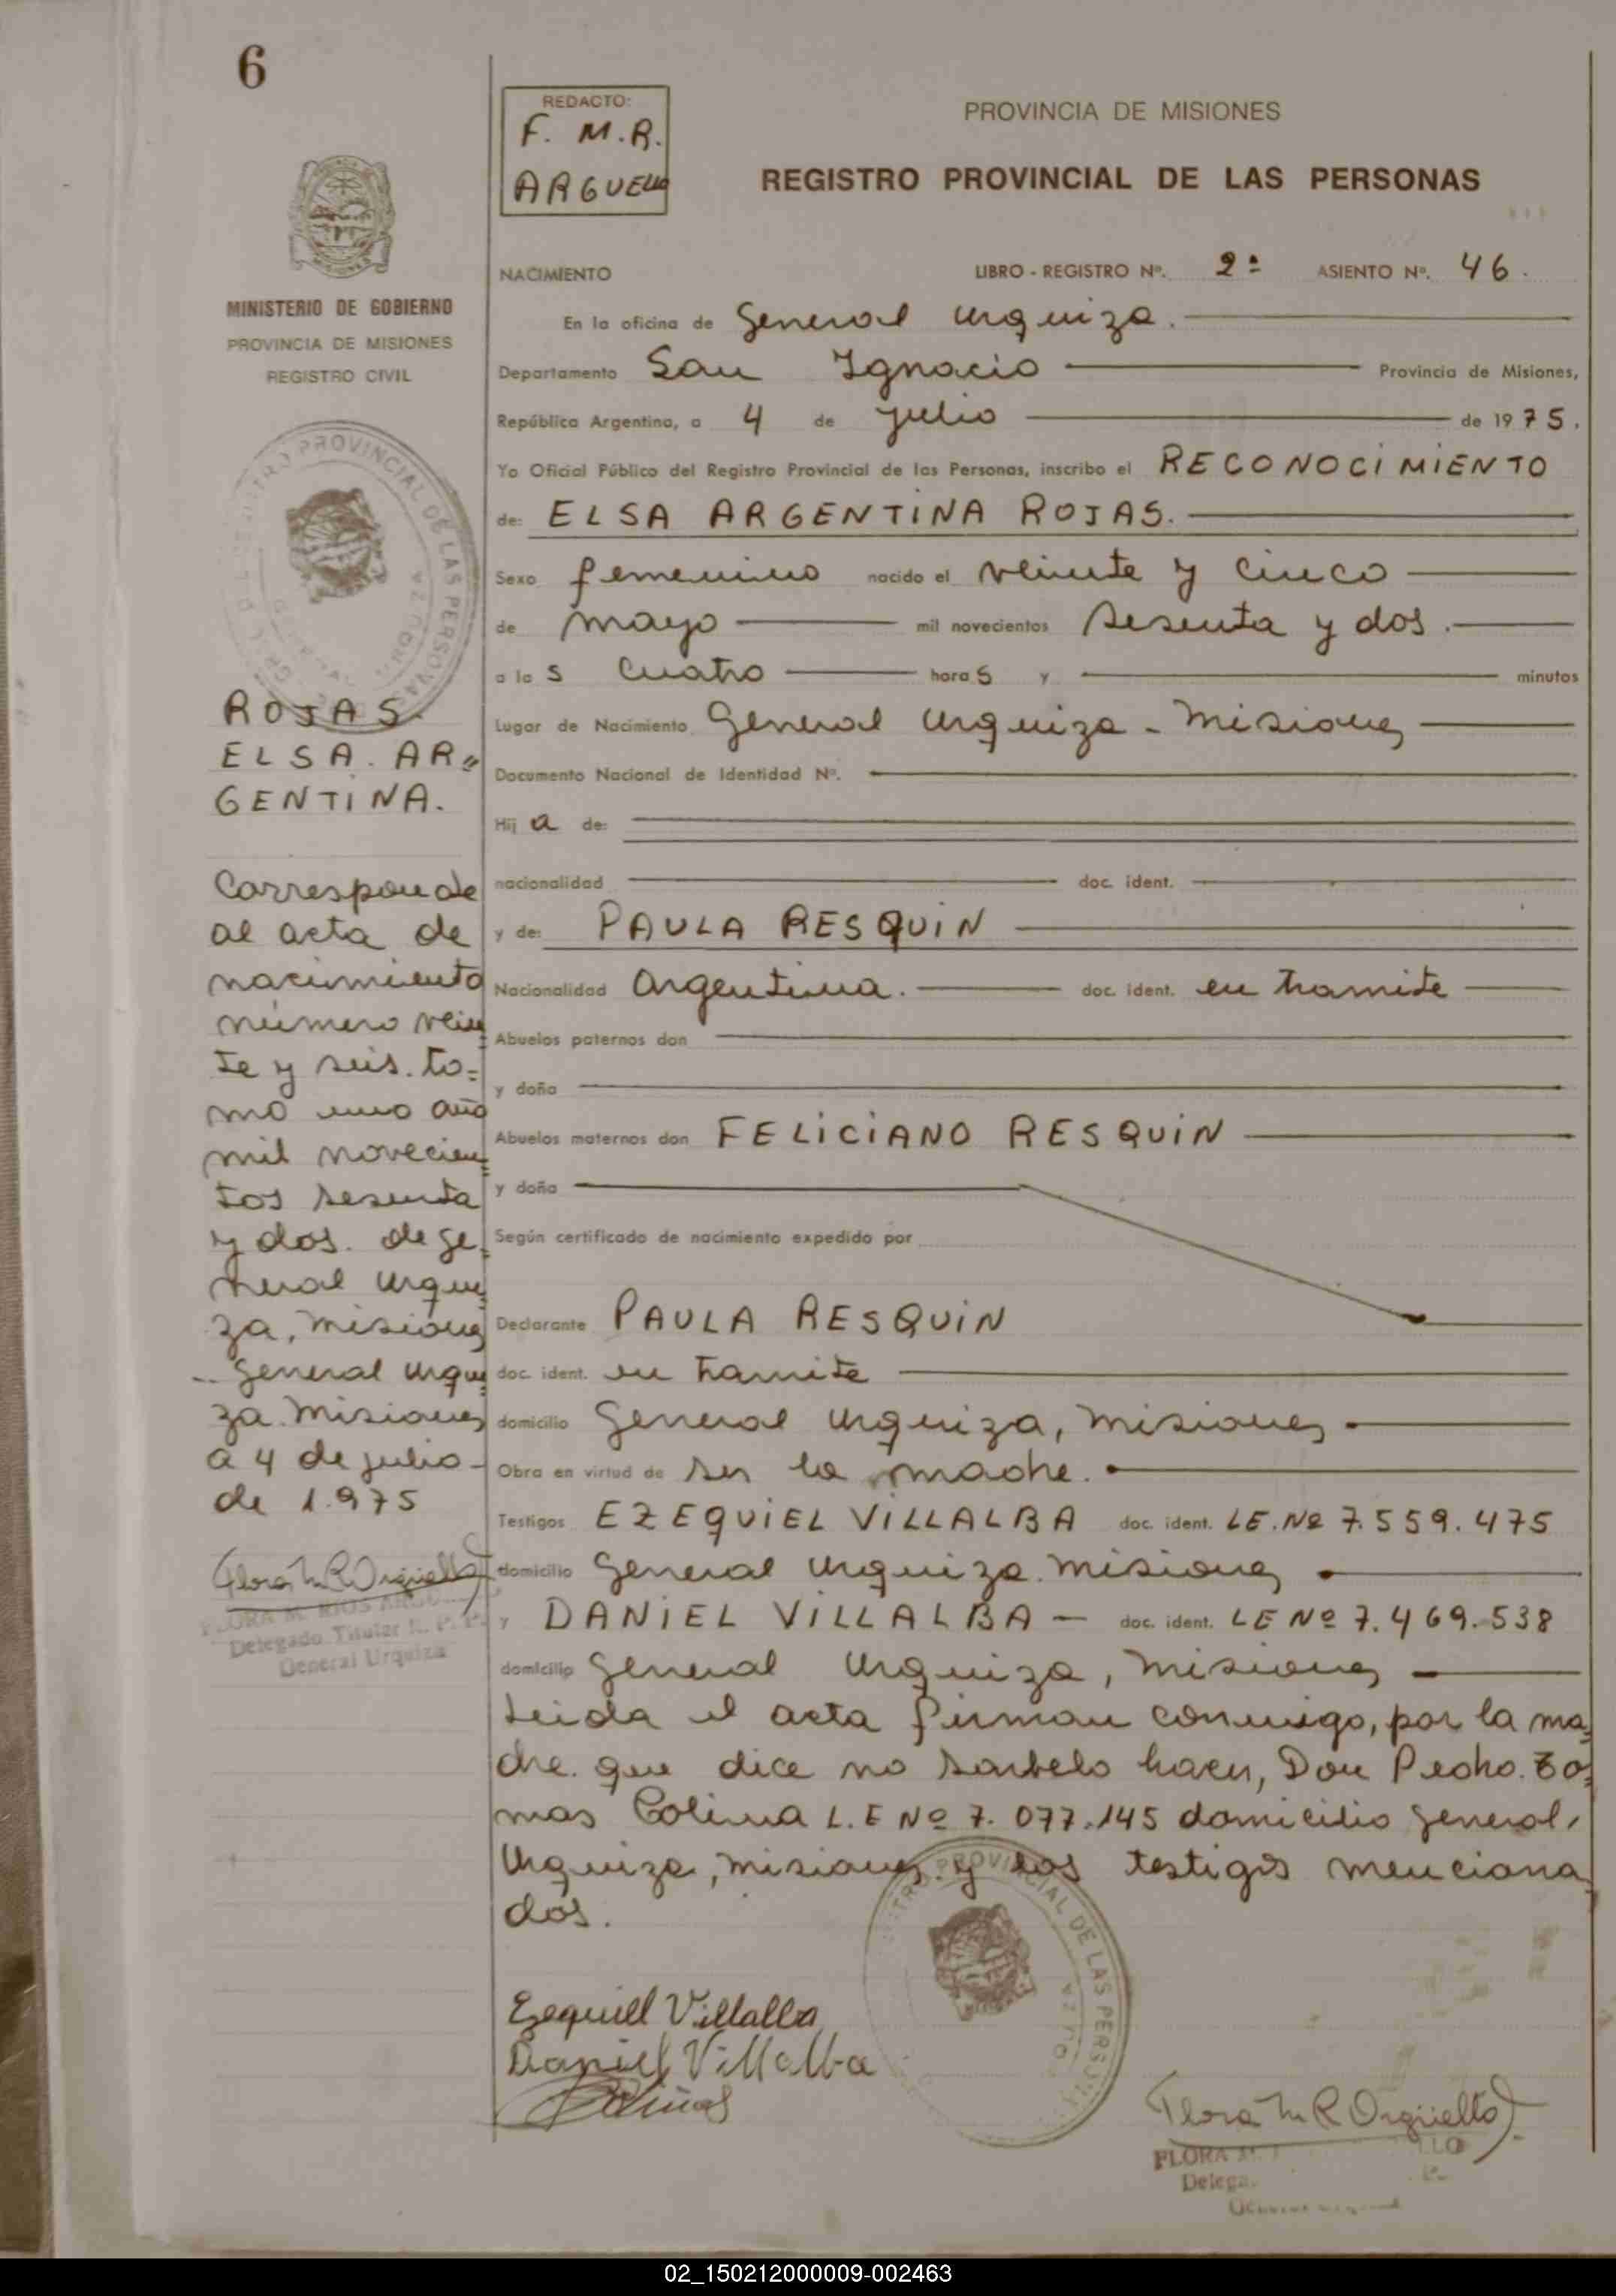 6
REDACTO:
F. M.R.
ARGUELLO
PROVINCIA DE MISIONES
REGISTRO PROVINCIAL DE LAS PERSONAS
MISIONES
MINISTERIO DE GOBIERNO
PROVINCIA DE MISIONES
REGISTRO CIVIL
PROVINCIAL DE LAS PERSONAS
ROJAS
ELSA. AR=
GENTINA.
Corresponde
al acta de
nacimiento
número vein
te y seis. to=
mo uno año
mil novecien
tos sesenta
y dos. de Ge
neral Urqui
za, Misiones
General Urqui
za. Misiones
a 4 de julio
de 1.975
Flora M R Argüello
FLORA M. RIOS ARGU
Delegado Titular R. P. P.
General Urquiza
NACIMIENTO LIBRO - REGISTRO Nº. 2º ASIENTO Nº. 46.
En la oficina de General Urquiza.
Departamento San Ignacio Provincia de Misiones,
República Argentina, a 4 de julio de 1975.
Yo Oficial Público del Registro Provincial de las Personas, inscribo el RECONOCIMIENTO
de: ELSA ARGENTINA ROJAS.
Sexo femenino nacido el veinte y cinco
de mayo mil novecientos sesenta y dos.
a las cuatro horas y minutos
Lugar de Nacimiento General Urquiza - Misiones
Documento Nacional de Identidad Nº.
Hija de:
nacionalidad doc. ident.
y de: PAULA RESQUIN
Nacionalidad Argentina. doc. ident. en tramite
Abuelos paternos don
y doña
Abuelos maternos don FELICIANO RESQUIN
y doña
Según certificado de nacimiento expedido por
Declarante PAULA RESQUIN
doc. ident. en tramite
domicilio General Urquiza, Misiones
Obra en virtud de ser la madre.
Testigos EZEQUIEL VILLALBA doc. ident. LE. Nº 7.559.475
domicilio General Urquiza. Misiones
y DANIEL VILLALBA — doc. ident. LE Nº 7.469.538
domicilio General Urquiza, Misiones
Leida el acta firman conmigo, por la ma=
dre. que dice no saberlo hacer, Don Pedro. To=
mas Colina L.E Nº 7.077.145 domicilio General,
Urquiza, Misiones y los testigos menciona
dos.
PROVINCIAL DE LAS PERSONAS
Ezequiel Villalba
Daniel Villalba
Flora M R Argüello
FLORA M.
Delega
02_150212000009-002463